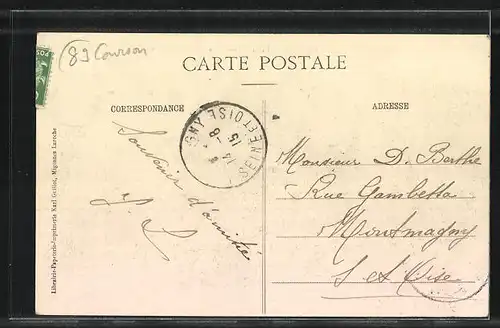 (89 Courson
CARTE POSTALE
CORRESPONDANCE
ADRESSE
Souvenir d'amitié
Monsieur D. Berthe
Rue Gambetta
Montmagny
S et Oise
SEINE ET OISE
15 - 8
14
Librairie-Papeterie-Imprimerie Karl Guillot, Migennes Laroche